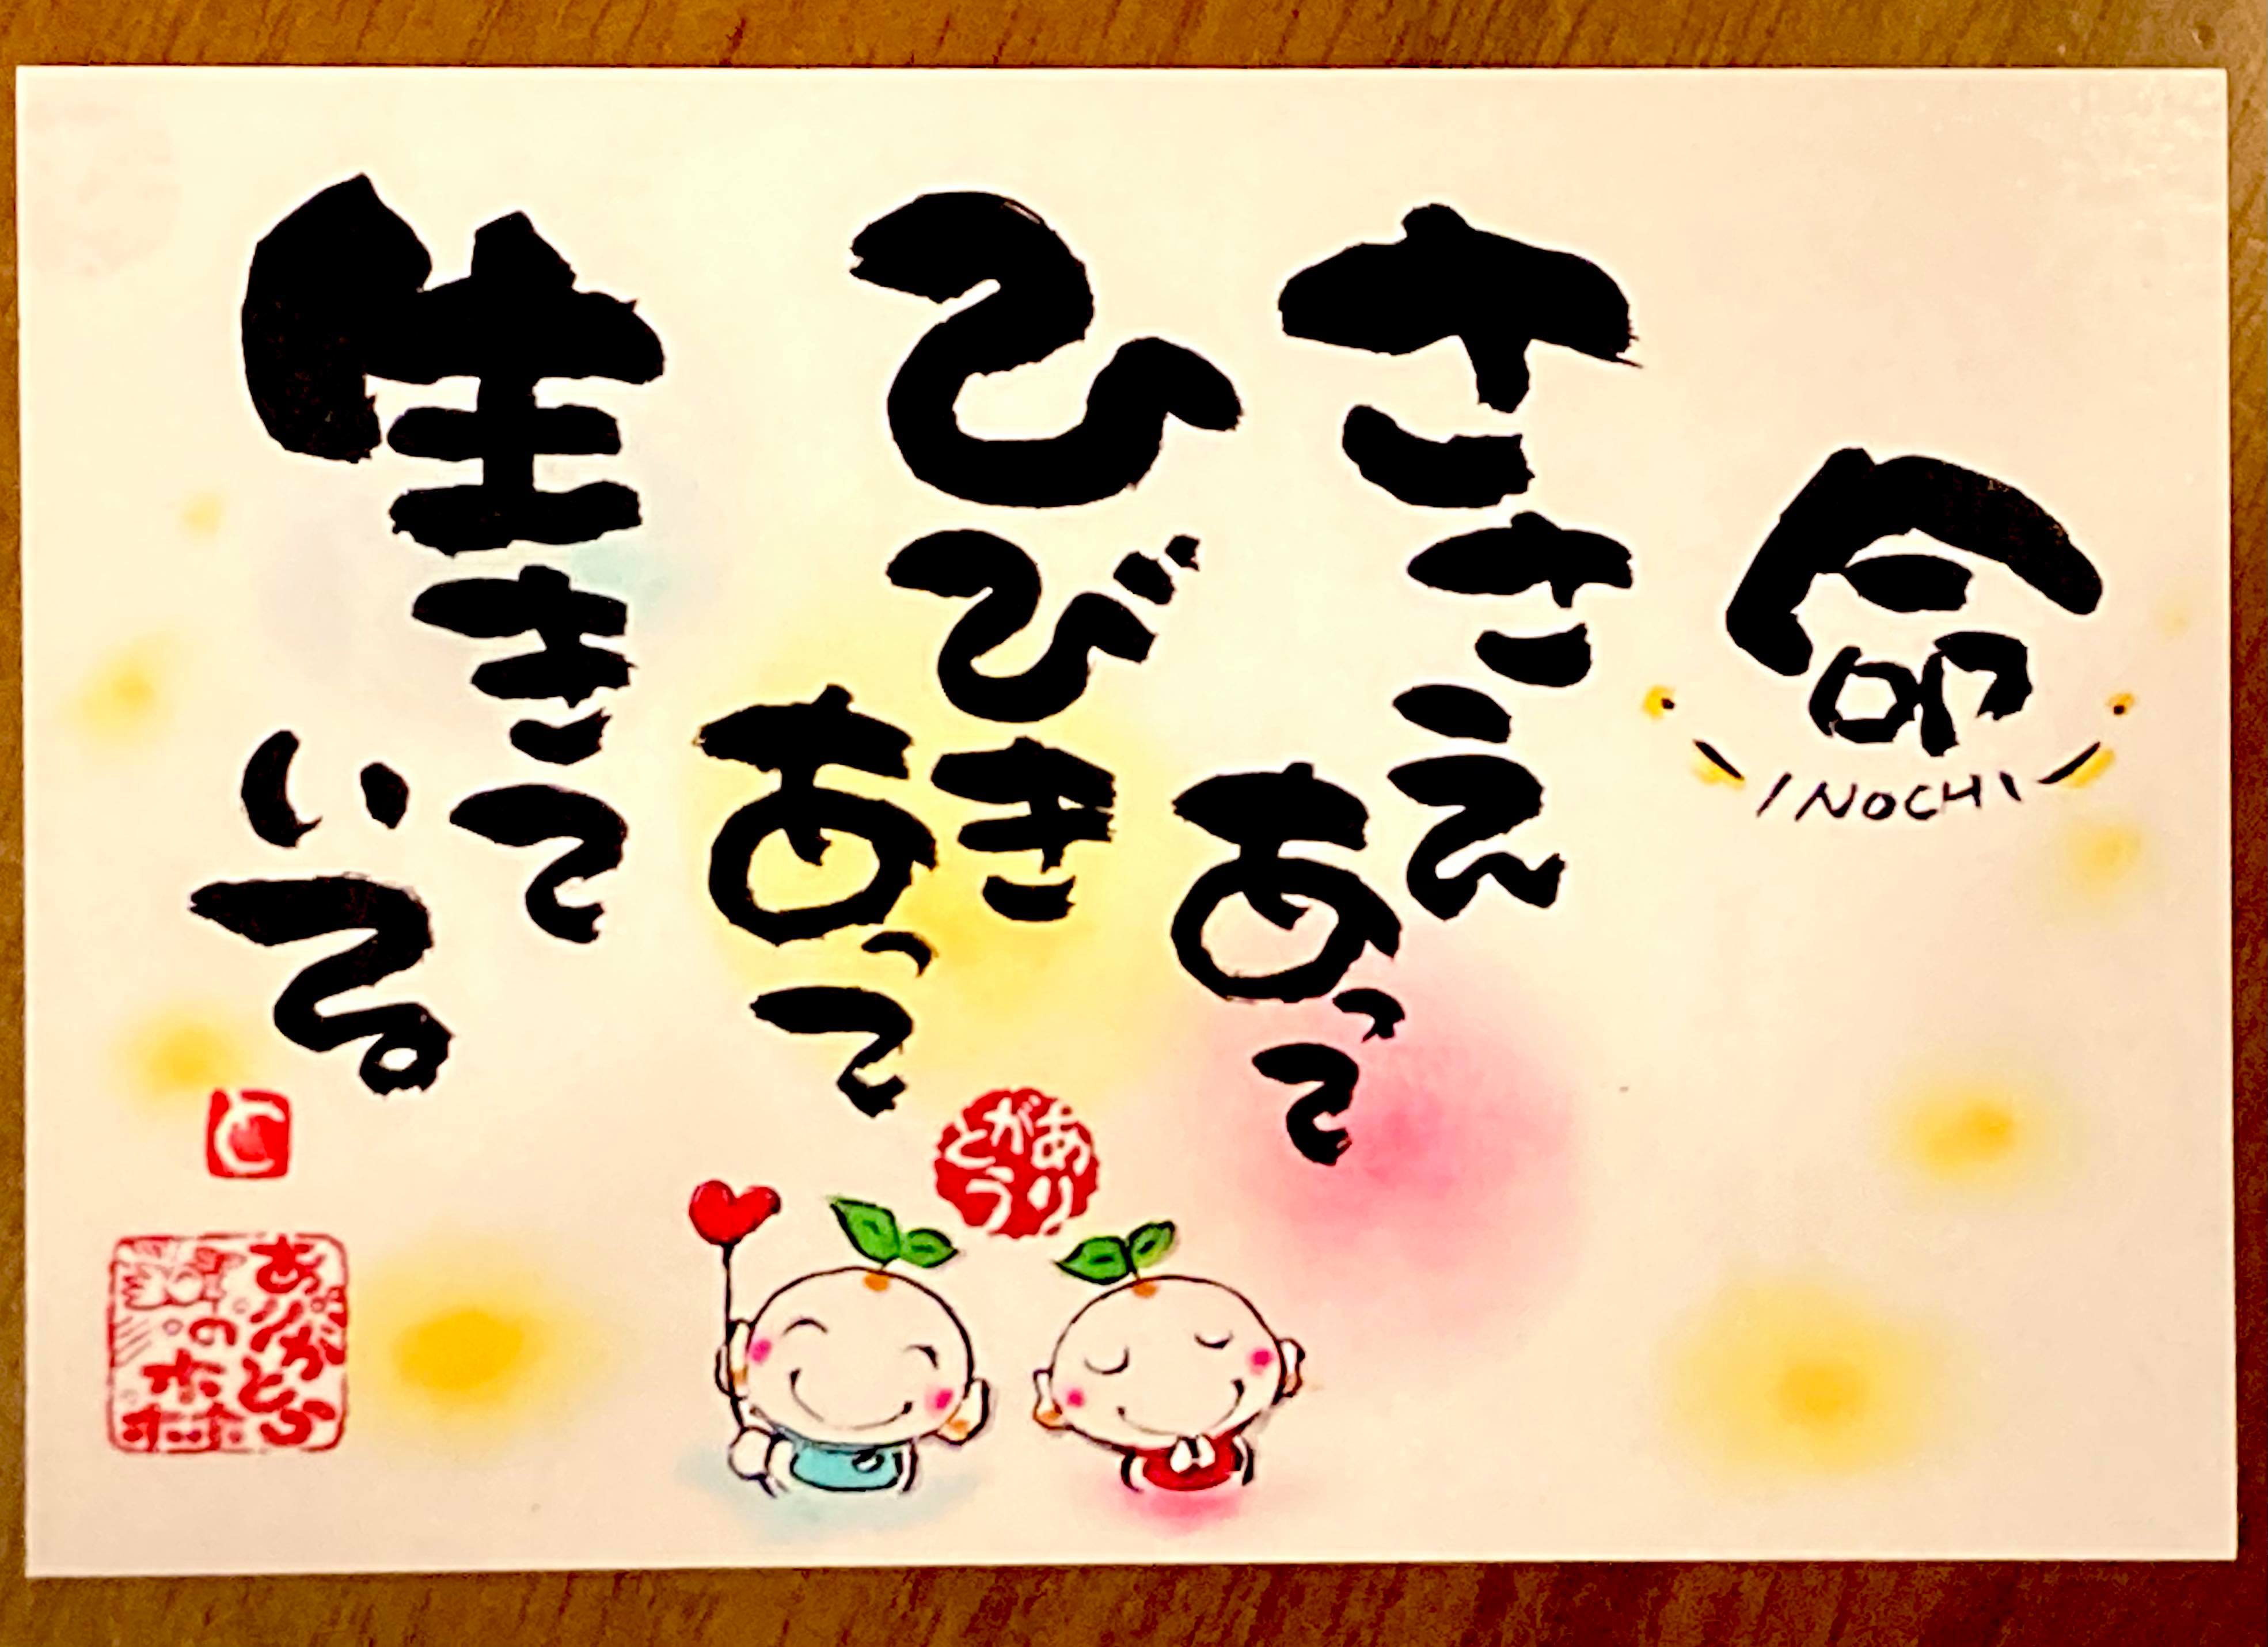 命
INOCHI
ささえ
あって
ひびき
あって
生きて
いる
ありがとう
と
ありがとう
の森